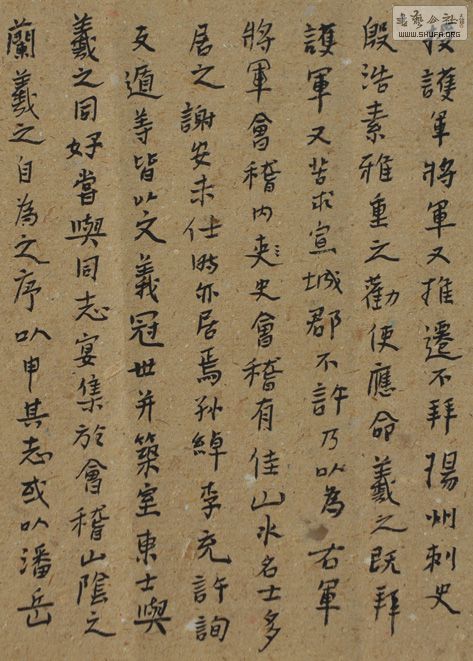 書藝公社
WWW.SHUFA.ORG
授護軍將軍又推遷不拜揚州刺史
殷浩素雅重之勸使應命羲之既拜
護軍又苦求宣城郡不許乃以為右軍
將軍會稽內史會稽有佳山水名士多
居之謝安未仕時亦居焉孫綽李充許詢
支遁等皆以文義冠世并築室東土與
羲之同好嘗與同志宴集於會稽山陰之
蘭羲之自為之序以申其志或以潘岳